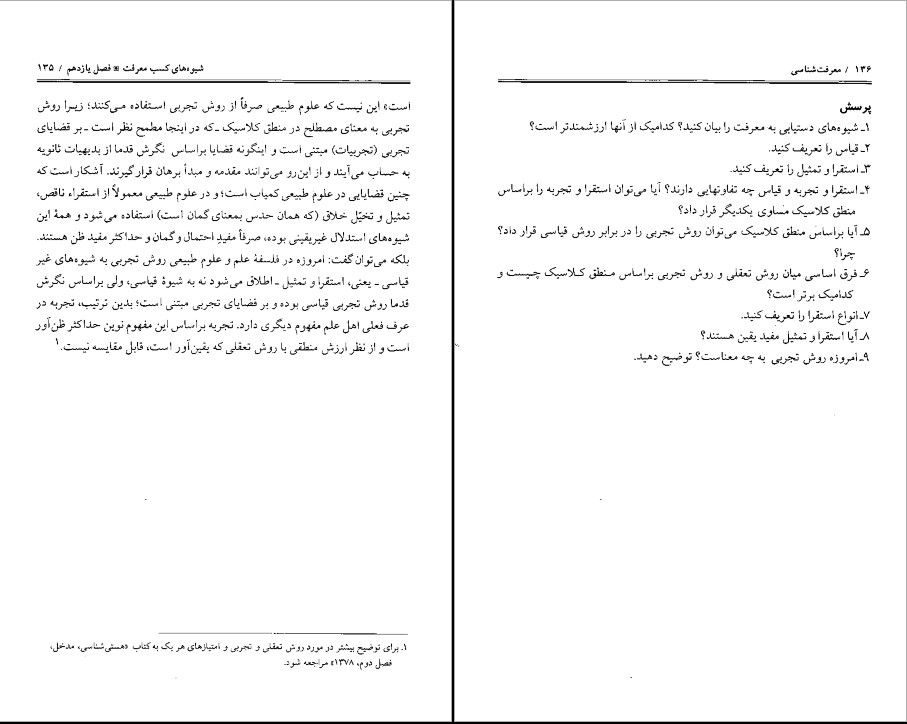 شیوه‌های کسب معرفت ※ فصل یازدهم / ۱۳۵
است» این نیست که علوم طبیعی صرفاً از روش تجربی استفاده می‌کنند؛ زیرا روش
تجربی به معنای مصطلح در منطق کلاسیک ـ که در اینجا مطمح نظر است ـ بر قضایای
تجربی (تجربیات) مبتنی است و اینگونه قضایا براساس نگرش قدما از بدیهیات ثانویه
به حساب می‌آیند و از این‌رو می‌توانند مقدمه و مبدأ برهان قرار گیرند. آشکار است که
چنین قضایایی در علوم طبیعی کمیاب است؛ و در علوم طبیعی معمولاً از استقراء ناقص،
تمثیل و تخیّل خلاق (که همان حدس بمعنای گمان است) استفاده می‌شود و همهٔ این
شیوه‌های استدلال غیریقینی بوده، صرفاً مفیدِ احتمال و گمان و حداکثر مفید ظن هستند.
بلکه می‌توان گفت: امروزه در فلسفهٔ علم و علوم طبیعی روش تجربی به شیوه‌های غیر
قیاسی ـ یعنی، استقرا و تمثیل ـ اطلاق می‌شود نه به شیوهٔ قیاسی، ولی براساس نگرش
قدما روش تجربی قیاسی بوده و بر قضایای تجربی مبتنی است؛ بدین ترتیب، تجربه در
عرف فعلی اهل علم مفهوم دیگری دارد. تجربه براساس این مفهوم نوین حداکثر ظن‌آور
است و از نظر ارزش منطقی با روش تعقلی که یقین‌آور است، قابل مقایسه نیست.۱
۱. برای توضیح بیشتر در مورد روش تعقلی و تجربی و امتیازهای هر یک به کتاب «هستی‌شناسی، مدخل،
فصل دوم، ۱۳۷۸» مراجعه شود.
۱۳۶ / معرفت‌شناسی
پرسش
۱ـ شیوه‌های دستیابی به معرفت را بیان کنید؟ کدامیک از آنها ارزشمندتر است؟
۲ـ قیاس را تعریف کنید.
۳ـ استقرا و تمثیل را تعریف کنید.
۴ـ استقرا و تجربه و قیاس چه تفاوتهایی دارند؟ آیا می‌توان استقرا و تجربه را براساس
منطق کلاسیک مساوی یکدیگر قرار داد؟
۵ـ آیا براساس منطق کلاسیک می‌توان روش تجربی را در برابر روش قیاسی قرار داد؟
چرا؟
۶ـ فرق اساسی میان روش تعقلی و روش تجربی براساس منطق کلاسیک چیست و
کدامیک برتر است؟
۷ـ انواع استقرا را تعریف کنید.
۸ـ آیا استقرا و تمثیل مفید یقین هستند؟
۹ـ امروزه روش تجربی به چه معناست؟ توضیح دهید.